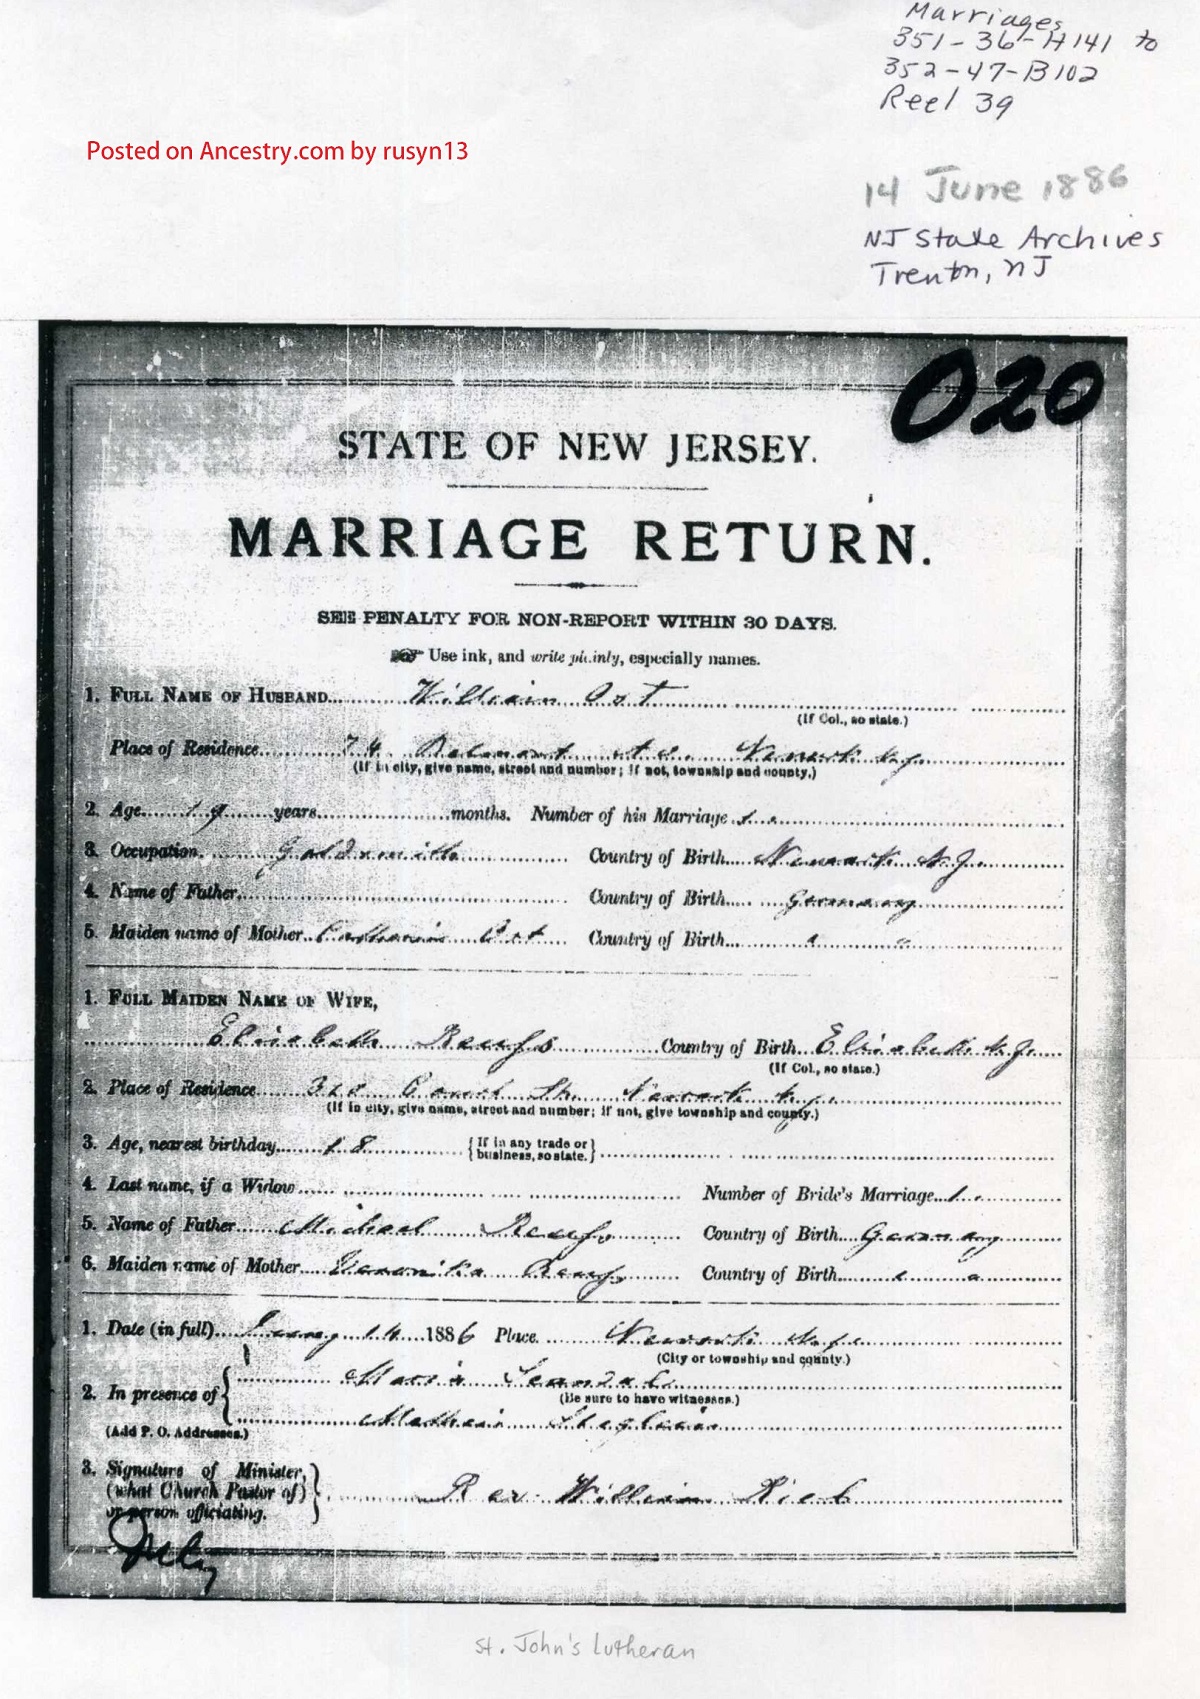 Marriages
351-36-H141 to
352-47-B102
Reel 39
Posted on Ancestry.com by rusyn13
14 June 1886
NJ State Archives
Trenton, NJ
020
STATE OF NEW JERSEY.
MARRIAGE RETURN.
SEE PENALTY FOR NON-REPORT WITHIN 30 DAYS.
Use ink, and write plainly, especially names.
1. FULL NAME OF HUSBAND William Ort
(If Col., so state.)
Place of Residence 74 Belmont Newark N.J.
(If in city, give name, street and number; if not, township and county.)
2. Age 19 years months. Number of his Marriage 1.
3. Occupation. Goldsmith Country of Birth Newark N.J.
4. Name of Father Country of Birth Germany
5. Maiden name of Mother Ort Country of Birth " "
1. FULL MAIDEN NAME OF WIFE,
Elisabeth Country of Birth Elisabeth N.J.
(If Col., so state.)
2. Place of Residence Court Str. Newark N.J.
(If in city, give name, street and number; if not, give township and county.)
3. Age, nearest birthday 18 {If in any trade or business, so state.}
4. Last name, if a Widow Number of Bride's Marriage 1.
5. Name of Father Michael Country of Birth Germany
6. Maiden name of Mother Veronika Country of Birth " "
1. Date (in full) 14 1886 Place Newark N.J.
(City or township and county.)
2. In presence of { Maria
(Be sure to have witnesses.)
(Add P. O. Addresses.)
3. Signature of Minister,
(what Church Pastor of) Rev. William Rieb
or person officiating.
St. John's Lutheran